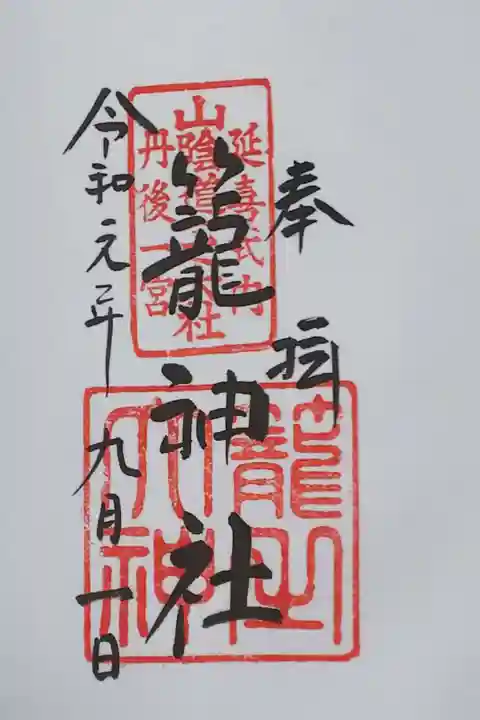 奉拝
籠神社
令和元年九月一日
延喜式内
山陰道一大社
丹後一宮
籠之大神